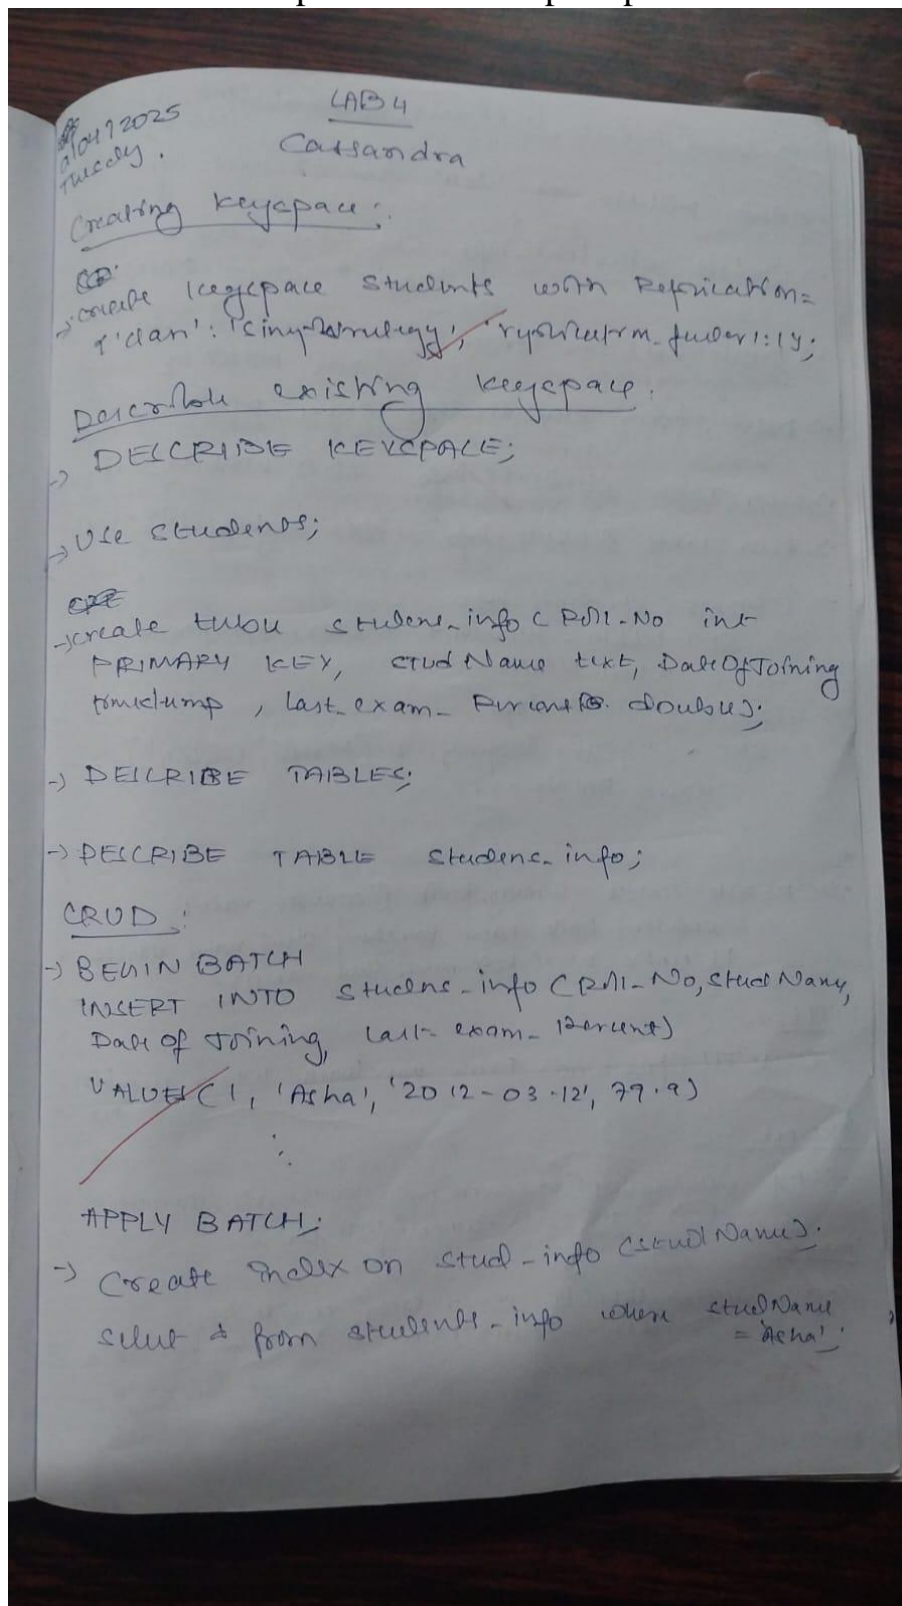 LAB 4
01/04/2025
Tuesday.
Cassandra
Creating Keyspace:
→ create keyspace Students with Replication=
{'class': 'SimpleStrategy', 'replication_factor':1};
Describe existing keyspace.
→ DESCRIBE KEYSPACE;
→ Use Students;
→ create table student_info ( Roll_No int
PRIMARY KEY, StudName text, DateOfJoining
timestamp, last_exam_ Percent double);
→ DESCRIBE TABLES;
→ DESCRIBE TABLE Student_info;
CRUD:
→ BEGIN BATCH
INSERT INTO Student_info (Roll_No, StudName,
Date of Joining, last_exam_Percent)
VALUES (1, 'Asha', '2012-03-12', 79.9)
:
APPLY BATCH;
→ Create Index on stud_info (StudName);
select * from students_info where studName
= 'Asha';